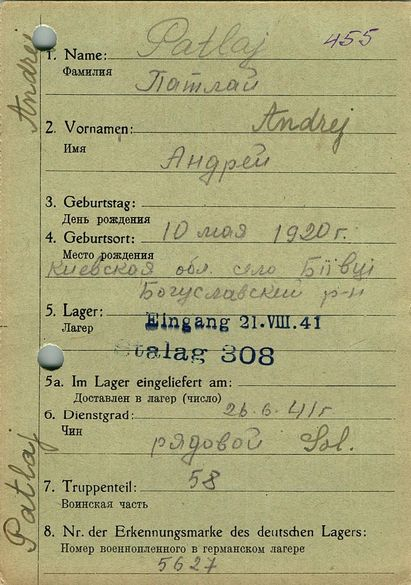 455
1. Name: Patlaj
Фамилия
Патлай
2. Vornamen: Andrej
Имя
Андрей
3. Geburtstag:
День рождения
10 мая 1920 г.
4. Geburtsort:
Место рождения
Киевская обл. село Біївці
Богуславский р-н
5. Lager:
Лагер
Eingang 21.VIII.41
Stalag 308
5a. Im Lager eingeliefert am:
Доставлен в лагер (число)
26.6.41г
6. Dienstgrad:
Чин
рядовой Sol.
7. Truppenteil: 58
Воинская часть
8. Nr. der Erkennungsmarke des deutschen Lagers:
Номер военнопленного в германском лагере
5627
Andrej
Patlaj